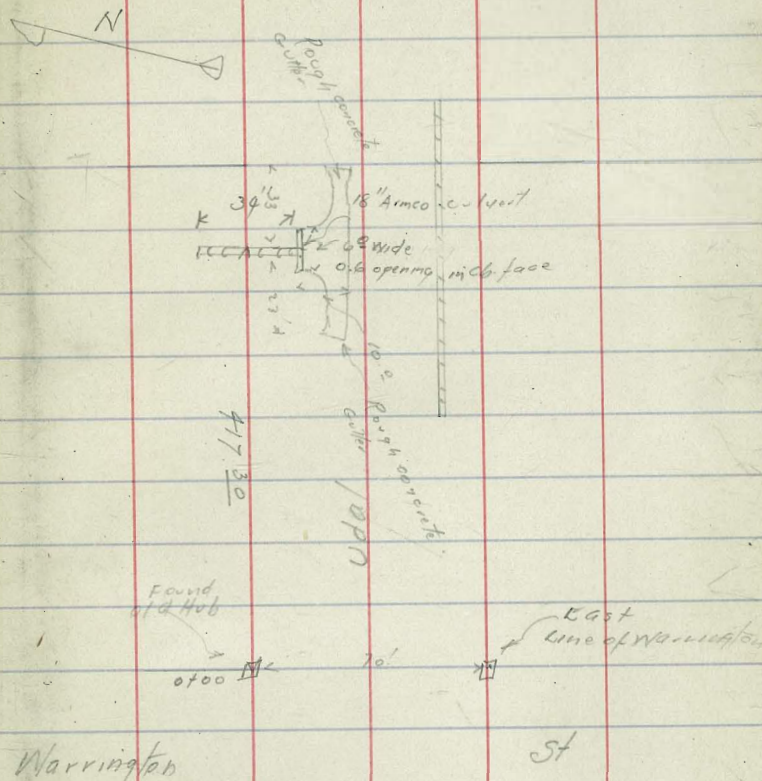 N
Rough concrete
Gutter
18" Armco culvert
34'
33
6.0 wide
0.6 opening in cb. face
27.
10.0 Rough concrete
Gutter
417.30
Found
old Hub
East
Line of Warrington
0+00
70'
Warrington
St